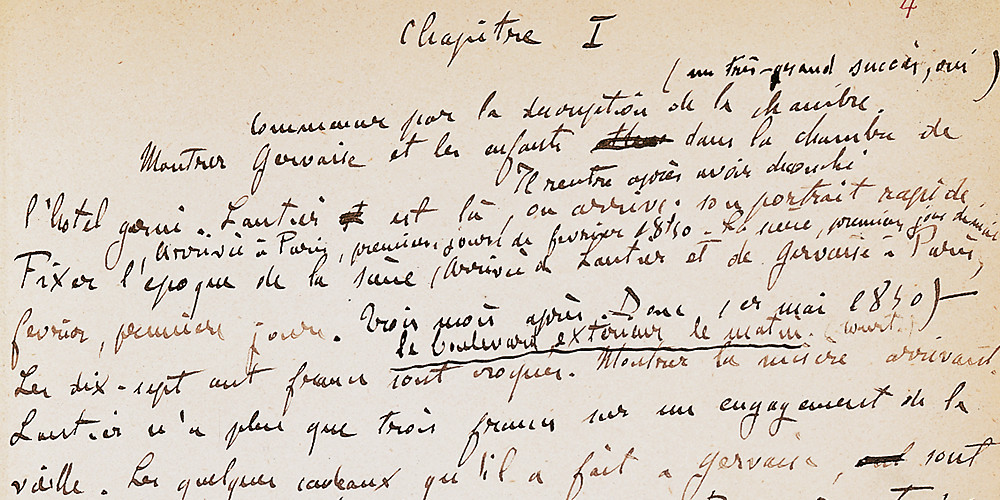 4
Chapitre I
(un très-grand succès, oui)
Commencer par la description de la chambre.
Montrer Gervaise et les enfants dans la chambre de
Il rentre après avoir découché
l'hôtel garni. Lantier est là, ou arrive. son portrait rapide.
(Arrivée à Paris, premiers jours de février 1850 - La scène, premiers jours de mai
Fixer l'époque de la scène (Arrivée de Lantier et de Gervaise à Paris,
février, premiers jours. Trois mois après. Donc 1er mai 1850) -
le boulevard extérieur le matin.
Les dix-sept cent francs sont croqués. Montrer la misère arrivant.
Lantier n'a plus que trois francs sur un engagement de la
veille. Les quelques cadeaux qu'il a fait a Gervaise, sont